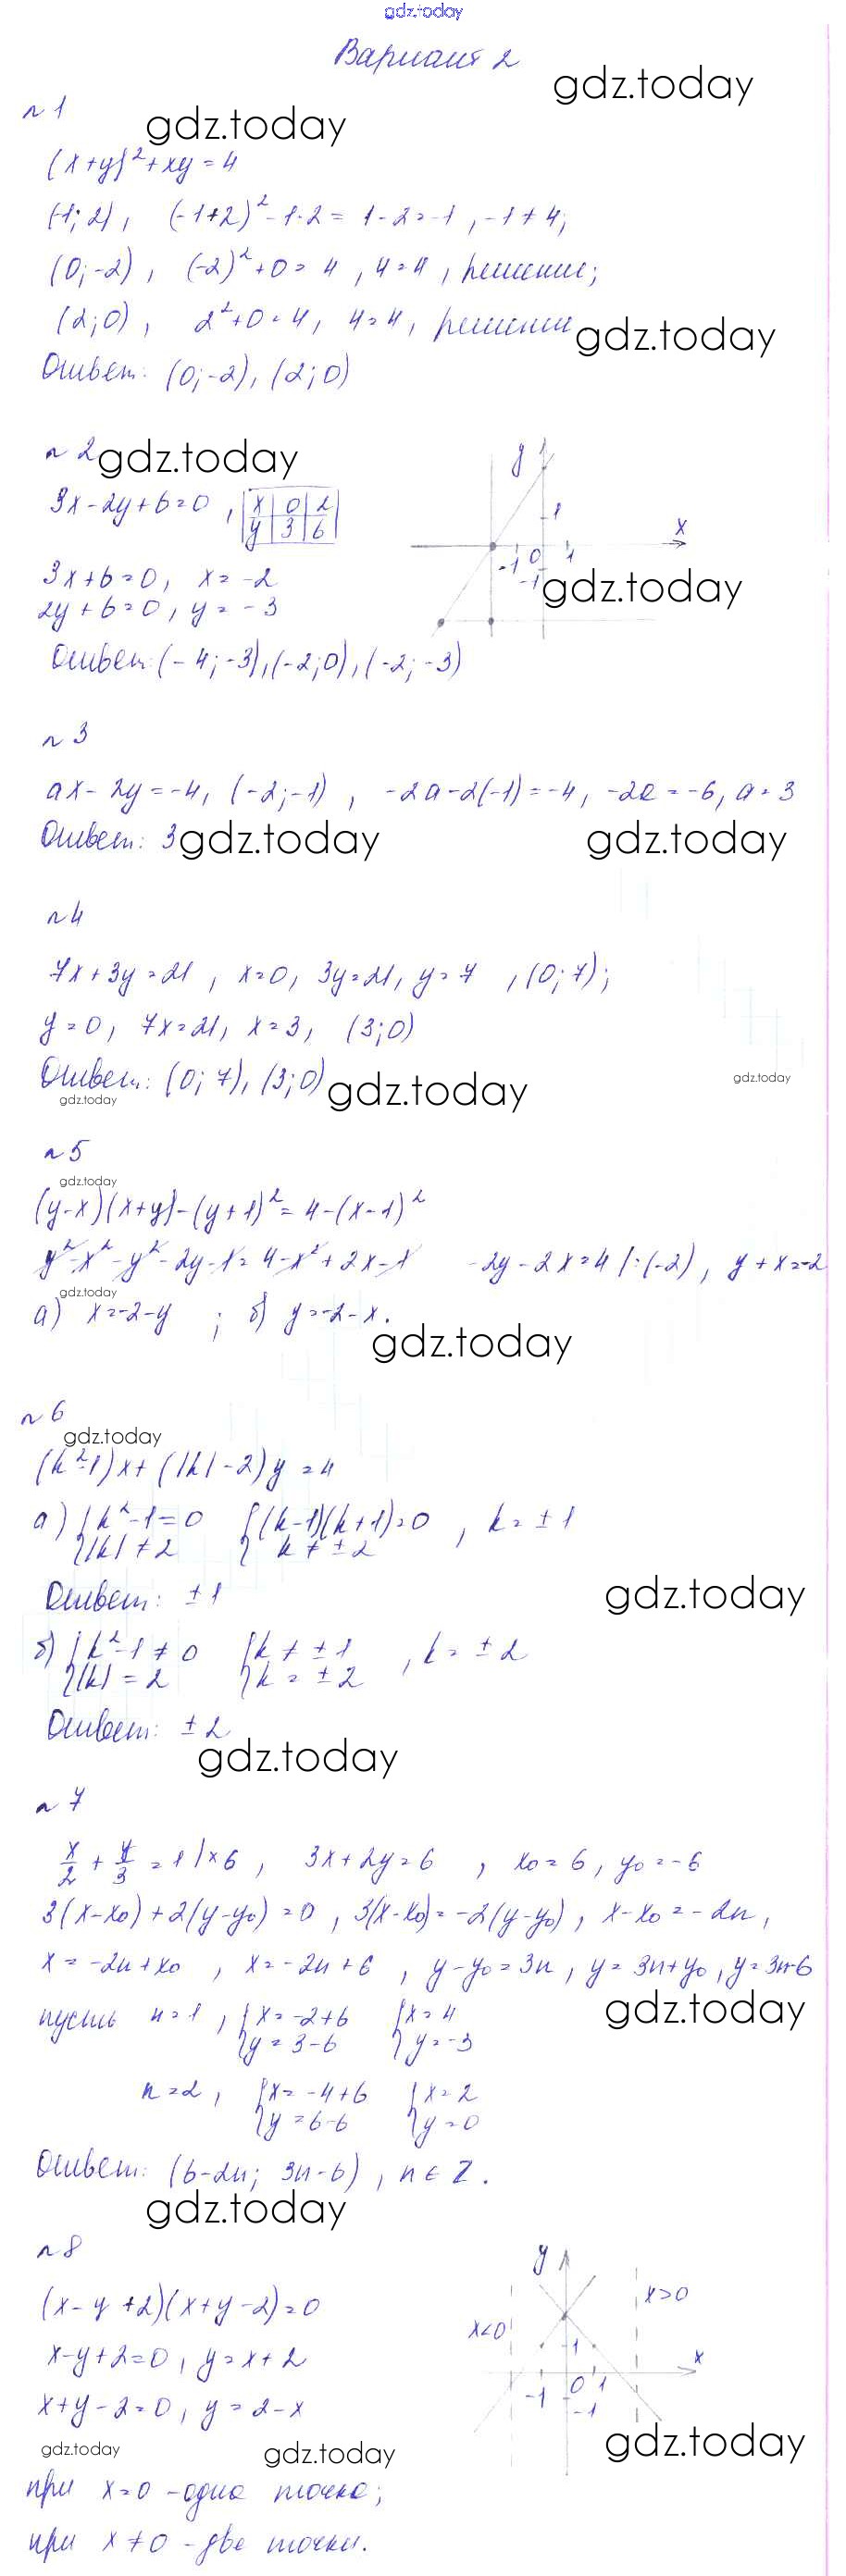 gdz.today
Вариант 2
gdz.today
n 1
gdz.today
(x+y)²+xy=4
(-1; 2), (-1+2)²-1·2 = 1-2=-1, -1≠4;
(0;-2), (-2)²+0=4, 4=4, решение;
(2;0), 2²+0=4, 4=4, решение
gdz.today
Ответ: (0;-2), (2;0)
n 2
gdz.today
3x-2y+6=0, x 0 2
y 3 6
y 1 x -1 0 1 -1
3x+6=0, x=-2
gdz.today
2y+6=0, y=-3
Ответ: (-4;-3), (-2;0), (-2;-3)
n 3
ax-2y=-4, (-2;-1), -2a-2(-1)=-4, -2a=-6, a=3
Ответ: 3
gdz.today gdz.today
n 4
7x+3y=21, x=0, 3y=21, y=7, (0;7);
y=0, 7x=21, x=3, (3;0)
Ответ: (0;7), (3;0)
gdz.today gdz.today
gdz.today
n 5
gdz.today
(y-x)(x+y)-(y+1)²=4-(x-1)²
y²-x²-y²-2y-1=4-x²+2x-1 -2y-2x=4 |:(-2), y+x=-2
gdz.today
а) x=-2-y; б) y=-2-x.
gdz.today
n 6
gdz.today
(k²-1)x+(|k|-2)y=4
а) {k²-1=0 {(k-1)(k+1)=0, k=±1
{|k|≠2 { k≠±2
Ответ: ±1
gdz.today
б) {k²-1≠0 {k≠±1, k=±2
{|k|=2 {k=±2
Ответ: ±2
gdz.today
n 7
x/2 + y/3 = 1 |×6, 3x+2y=6, x₀=6, y₀=-6
3(x-x₀)+2(y-y₀)=0, 3(x-x₀)=-2(y-y₀), x-x₀=-2n,
x=-2n+x₀, x=-2n+6, y-y₀=3n, y=3n+y₀, y=3n-6
gdz.today
пусть n=1, {x=-2+6 {x=4
{y=3-6 {y=-3
n=2, {x=-4+6 {x=2
{y=6-6 {y=0
Ответ: (6-2n; 3n-6), n∈Z.
gdz.today
n 8
(x-y+2)(x+y-2)=0
x-y+2=0, y=x+2
x+y-2=0, y=2-x
y x>0 x<0 1 x -1 0 1 -1
gdz.today
gdz.today gdz.today
при x=0 - одна точка;
при x≠0 - две точки.